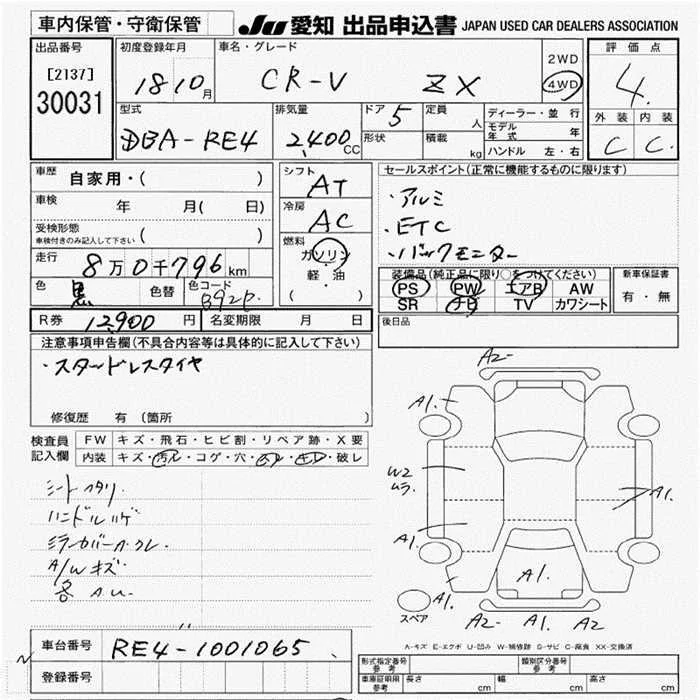 車内保管・守衛保管 JU 愛知 出品申込書 JAPAN USED CAR DEALERS ASSOCIATION
出品番号 初度登録年月 車名・グレード 評価点
[2137] 18 10月 CR-V ZX 2WD 4WD 4.
30031
型式 排気量 ドア 5 定員 人 ディーラー・並行 外装 内装
DBA-RE4 2,400cc 形状 積載 kg モデル年式 年 C C
ハンドル 左・右
車歴 自家用・( ) シフト AT セールスポイント(正常に機能するものに限ります)
車検 年 月( 日) 冷房 AC ・アルミ
受検形態 ( ) ・ETC
車検付きのみ記入して下さい 燃料 ガソリン ・バックモニター
走行 8万0千796km 軽・油 装備品(純正品に限り○をつけてください) 新車保証書
色 黒 色替 色コード B92P ( ) PS PW エアB AW 有・無
SR ナビ TV カワシート
R券 12,900円 名変期限 月 日 後日品
注意事項申告欄(不具合内容等は具体的に記入して下さい)
・スタッドレスタイヤ
修復歴 有 (箇所 )
検査員 FW キズ・飛石・ヒビ割・リペア跡・X要
記入欄 内装 キズ・汚レ・コゲ・穴・スレ・キレ・破レ
シートヘタリ
ハンドルハゲ
ミラーカバーA.クレ.
A/Wキズ
各AU-
A2-
A1. A1.
W2
ムラ
A1.
A1.
A1. A1.
スペア A2- A1. A2
A-キズ E-エクボ U-凹み W-補修跡 S-サビ C-腐食 XX-交換済
車台番号 RE4-1001065
登録番号
形式指定番号 参考 類別区分番号 参考
車庫証明用 参考 長さ cm 幅 cm 高さ cm